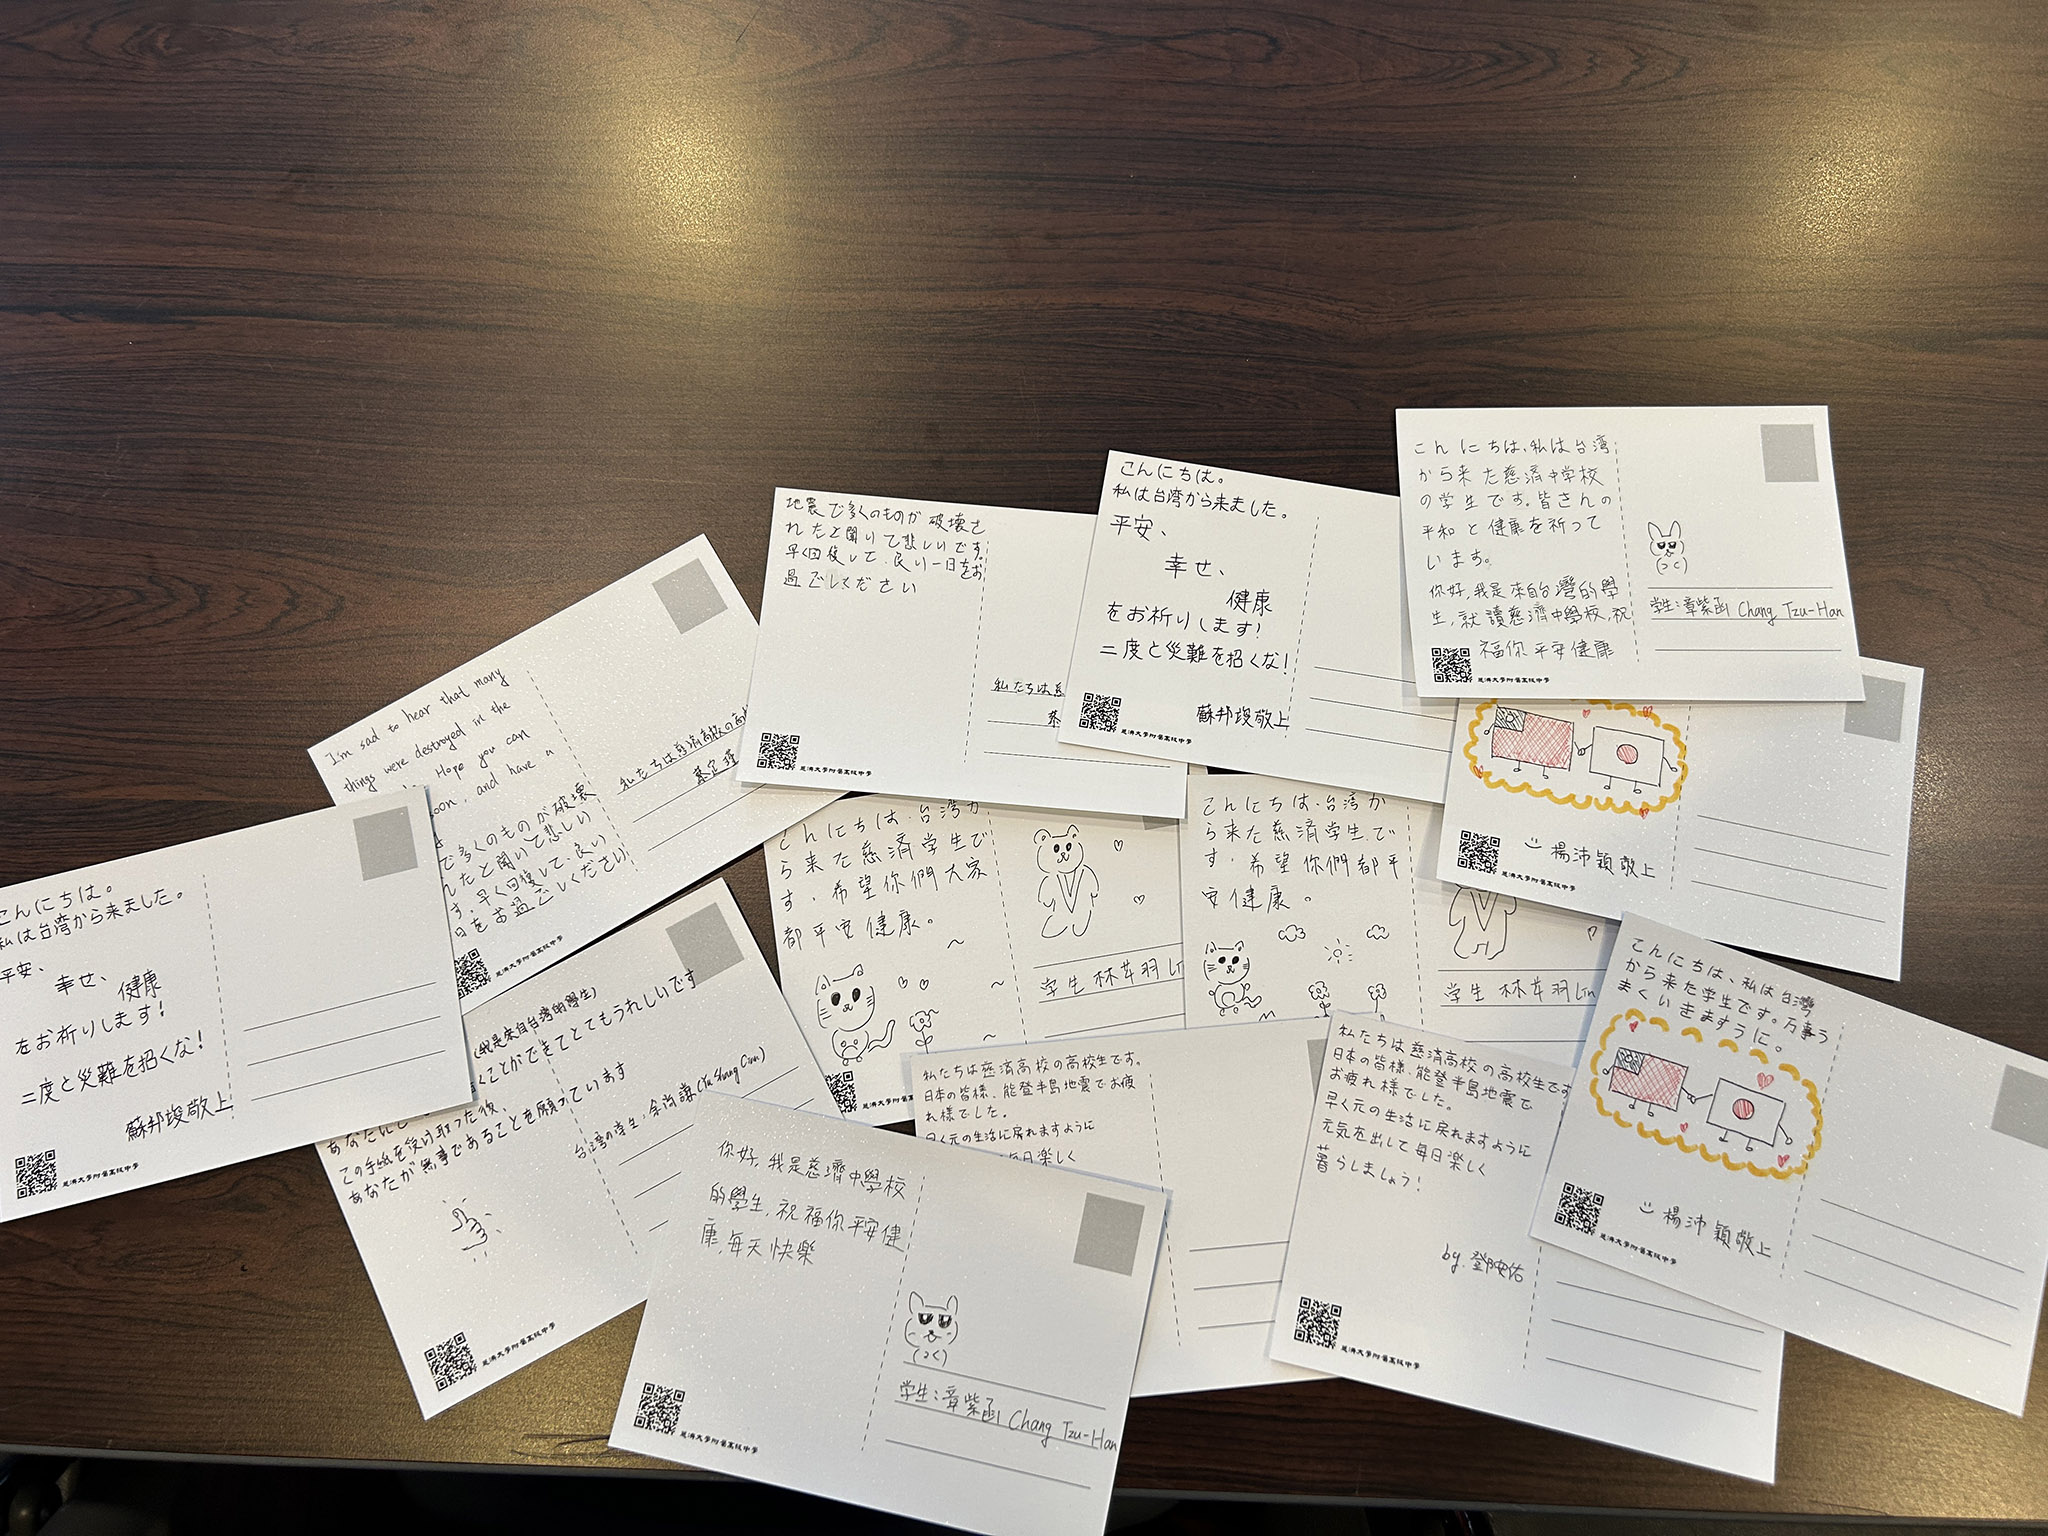 こんにちは、私は台湾
から来た慈済中学校
の学生です。皆さんの
平和と健康を祈って
います。
你好,我是來自台灣的學
生,就讀慈濟中學校,祝
福你平安健康
学生:章紫函 Chang Tzu-Han
慈濟大學附屬高級中學
こんにちは。
私は台湾から来ました。
平安、
幸せ、
健康
をお祈りします!
二度と災難を招くな!
蘇邦竣敬上
慈濟大學附屬高級中學
地震で多くのものが破壊さ
れたと聞いて悲しいです。
早く回復して、良い一日をお
過ごしください
私たちは慈
蔡
慈濟大學附屬高級中學
I'm sad to hear that many
things were destroyed in the
Hope you can
oon, and have a
で多くのものが破壊
たと聞いて悲しい
す。早く回復して、良い
日をお過ごしください
私たちは慈済高校の高
蔡
慈濟大學附屬高級中學
楊沛穎敬上
慈濟大學附屬高級中學
こんにちは、台湾か
ら来た慈済学生で
す。希望你們大家
都平安健康。
学生 林芽羽 Li
慈濟大學附屬高
こんにちは、台湾か
ら来た慈済学生で
す。希望你們都平
安健康。
学生 林芽羽 Lin
こんにちは。
私は台湾から来ました。
平安、
幸せ、
健康
をお祈りします!
二度と災難を招くな!
蘇邦竣敬上
慈濟大學附屬高級中學
(我是來自台湾的學生)
くことができてとてもうれしいです
あなたに
この手紙を受け取った後、
あなたが無事であることを願っています
台湾の学生:余
慈濟大學附屬高級中學
こんにちは、私は台湾
から来た学生です。万事う
まくいきますうに。
楊沛穎敬上
慈濟大學附屬高級中學
私たちは慈済高校の高校生です。
日本の皆様、能登半島地震でお疲
れ様でした。
早く元の生活に戻れますように
毎日楽しく
私たちは慈済高校の高校生です
日本の皆様、能登半島地震で
お疲れ様でした。
早く元の生活に戻れますように
元気を出して毎日楽しく
暮らしましょう!
by. 鄧安佑
慈濟大學附屬高級中學
你好,我是慈濟中學校
的學生,祝福你平安健
康,每天快樂
学生:章紫函 Chang Tzu-Han
慈濟大學附屬高級中學